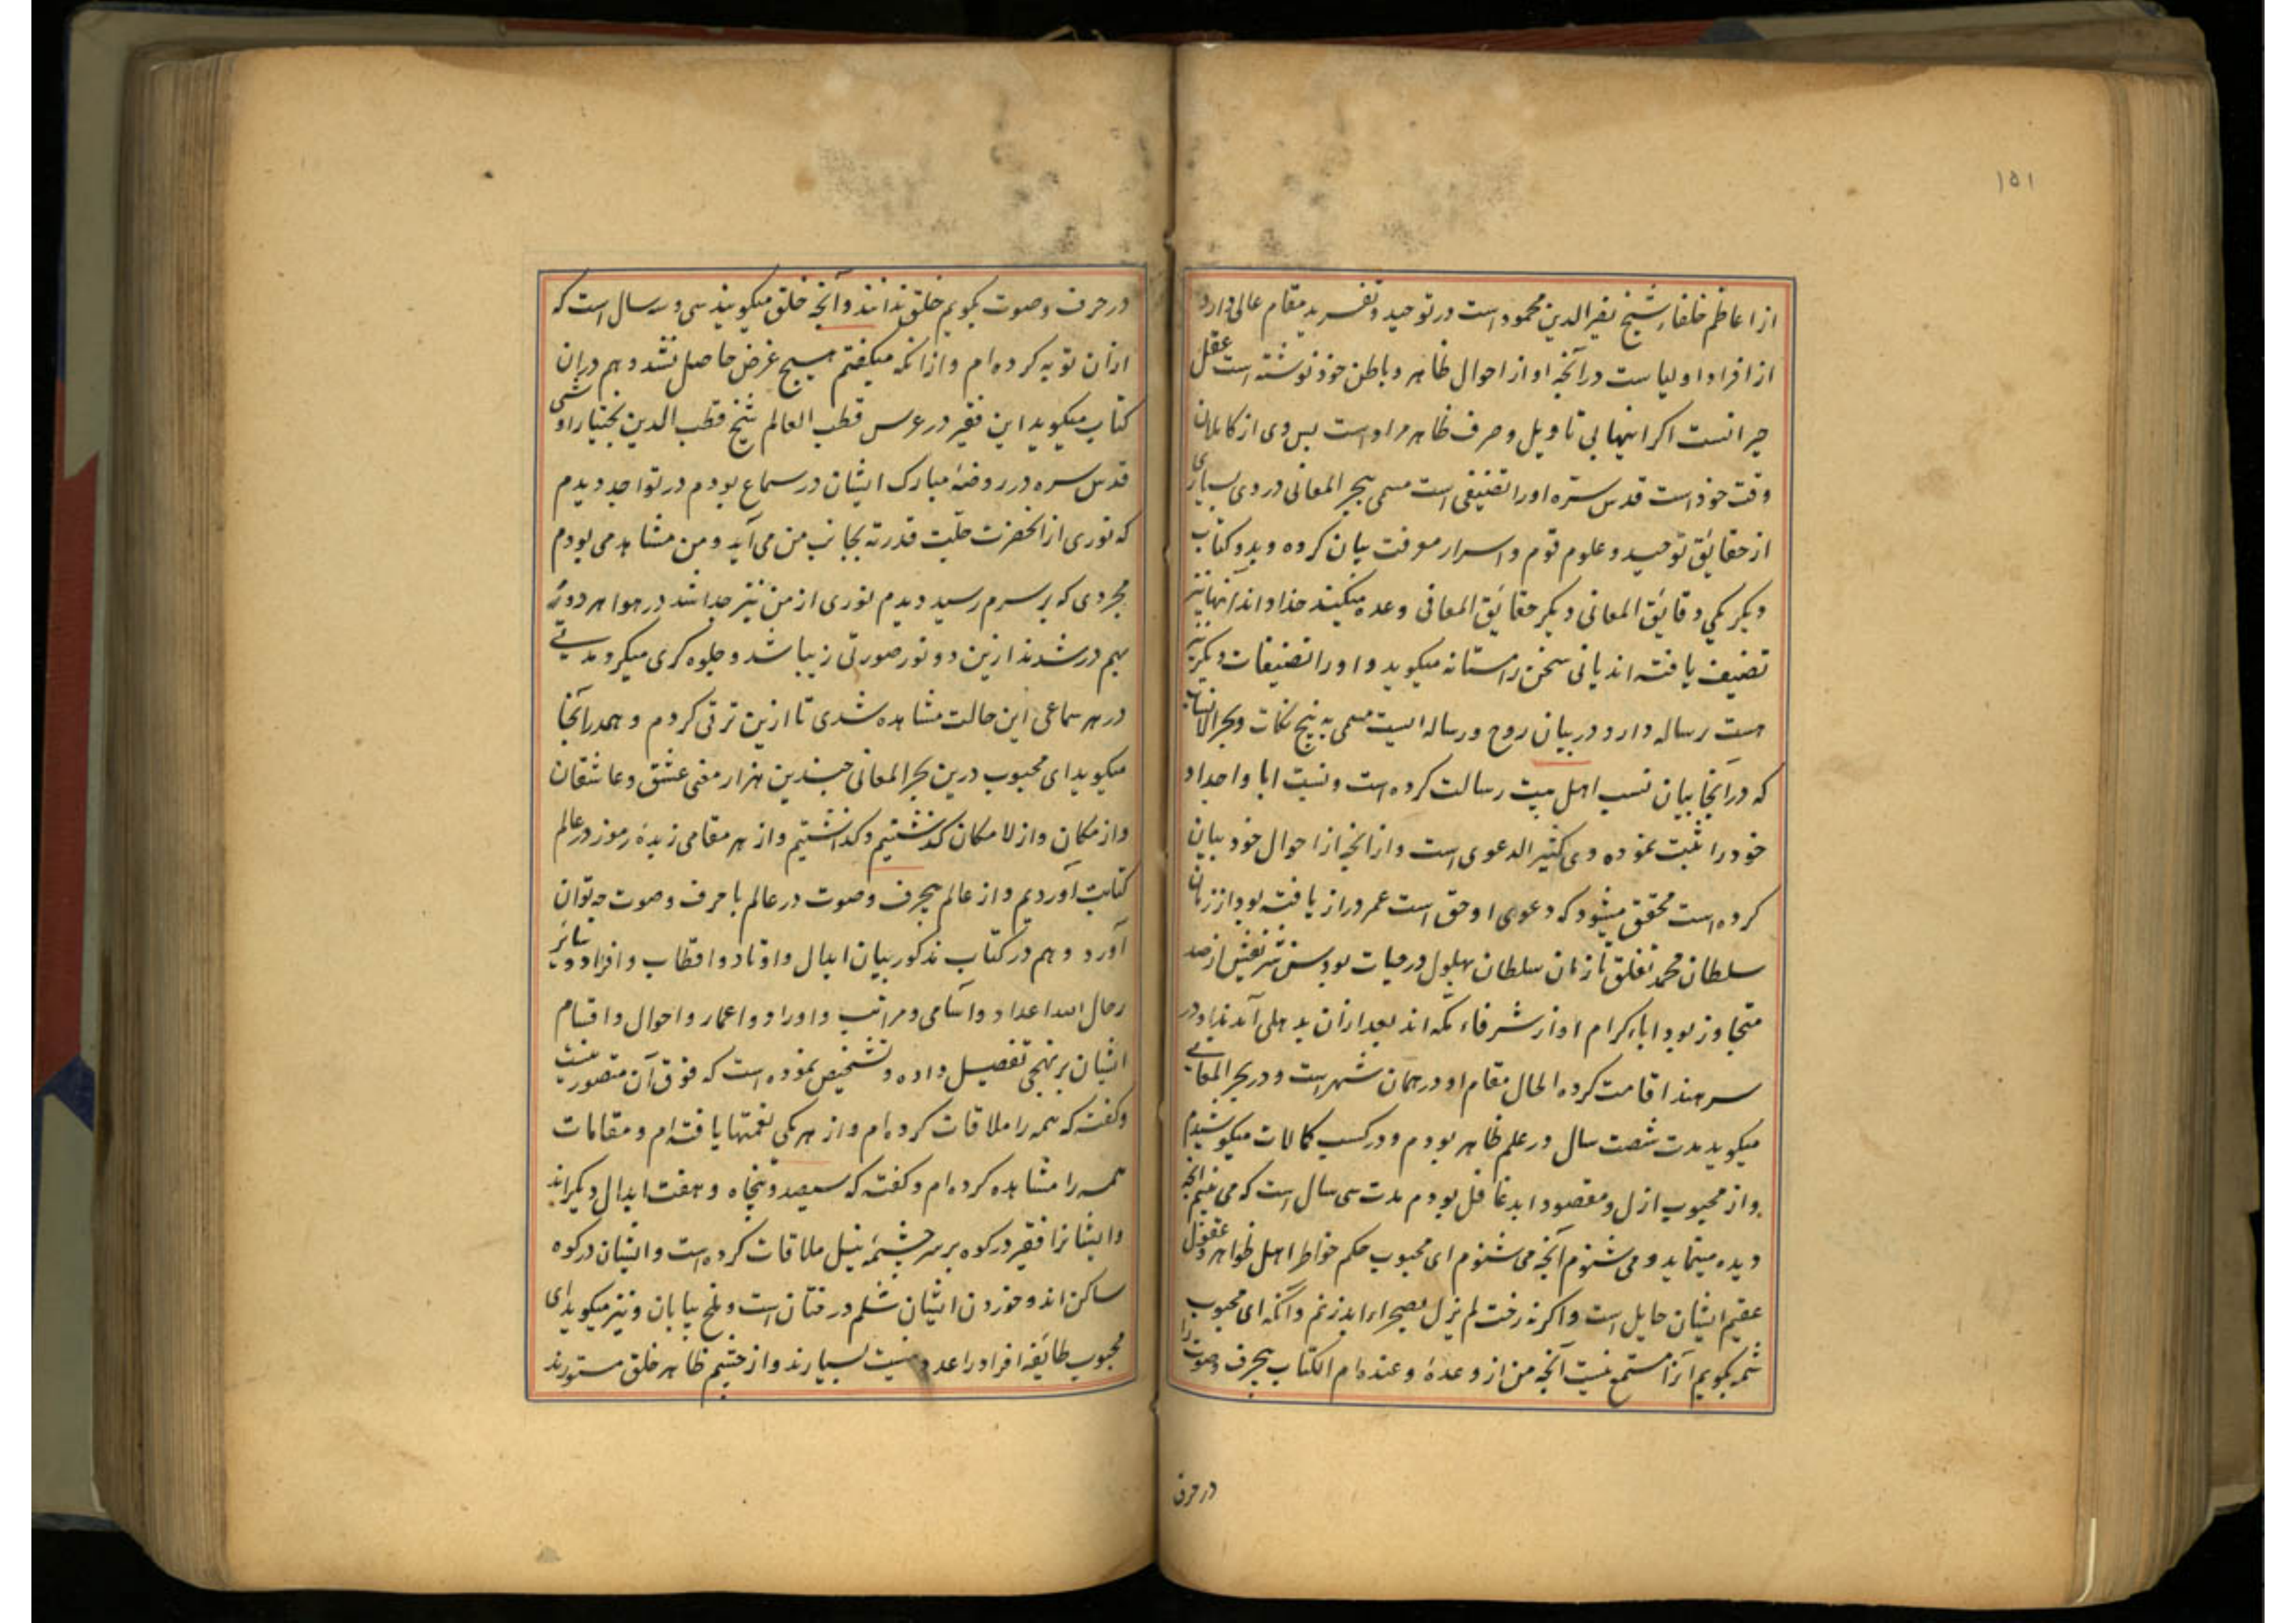 ۱۵۱
از اعاظم خلفاء شیخ نصیر الدین محمود است در توحید و تفرید مقام عالی دارد
از افراد اولیا ست در آنچه او از احوال ظاهر و باطن خود نوشته است عقل
حیرانست اکر اینها بی تاویل و صرف ظاهر مراد است بس وی از کاملان
وقت خود است قدس سره او را تصنیفی است مسمی ببحر المعانی در وی بسیاری
از حقایق توحید و علوم قوم و اسرار معرفت بیان کرده و بدو کتاب
دیکر یکی دقایق المعانی دیکر حقایق المعانی وعده میکند خدا داند آنها نیز
تصنیف یافته اند یا نی سخن را مستانه میکوید و او را تصنیفات دیکر نیز
هست رساله دارد در بیان روح و رساله ایست مسمی به پنج نکات و بحر الانساب
که در آنجا بیان نسب اهل بیت رسالت کرده است و نسبت ابا و اجداد
خود را ثبت نموده وی کثیر الدعوی است و از آنچه از احوال خود بیان
کرده است محقق میشود که دعوی او حق است عمر دراز یافته بود از زمان
سلطان محمد تغلق تا زمان سلطان بهلول در حیات بود سن شریفش از صد
متجاوز بود اباء کرام او از شرفاء مکه اند بعد ازان بدهلی آمدند او در
سرهند اقامت کرده الحال مقام او در همان شهر است و در بحر المعانی
میکوید مدت شصت سال در علم ظاهر بودم و در کسب کمالات میکوشیدم
و از محبوب ازل و مقصود ابد غافل بودم مدت سی سال است که می بینم آنچه
دیده مینماید و می شنوم آنچه می شنوم ای محبوب حکم خواطر اهل ظواهر و عقول
عقیم ایشان حایل است و اکر نه رخت لم یزل بصحراء ابد زنم و آنکه ای محبوب
شمه بکویم آنرا مستمع نیست آنچه من از وعده و عنده ام الکتاب بیحرف و صوت را
در حرف
در حرف و صوت بکویم خلق ندانند و آنچه خلق میکویند سی و سه سال است که
ازان توبه کرده ام و از آنکه میکفتم هیچ غرض حاصل نشد و هم دران
کتاب میکوید این فقیر در عرس قطب العالم شیخ قطب الدین بختیار اوشی
قدس سره در روضهٔ مبارک ایشان در سماع بودم در تواجد دیدم
که نوری از آنحضرت جلت قدرته بجانب من می آید و من مشاهد می بودم
بمجردی که بر سرم رسید دیدم نوری از من نیز جدا شد در هوا هر دو
بهم در شدند ازین دو نور صورتی زیبا شد و جلوه کری میکرد مدتی
در هر سماعی این حالت مشاهده شدی تا ازین ترقی کردم و همدر آنجا
میکوید ای محبوب درین بحر المعانی چندین هزار معنی عشق و عاشقان
و از مکان و از لا مکان کذشتیم و کذاشتیم و از هر مقامی زبدهٔ رموز در عالم
کتابت آوردیم و از عالم بیحرف و صوت در عالم با حرف و صوت چه توان
آورد و هم در کتاب مذکور بیان ابدال و اوتاد و اقطاب و افراد و سائر
رجال الله اعداد و اسامی و مراتب و اوراد و اعمار و احوال و اقسام
ایشان بر نهجی تفصیل داده و تشخیص نموده است که فوق آن متصور نیست
و کفته که همه را ملاقات کرده ام و از هر یکی نعمتها یافته ام و مقامات
همه را مشاهده کرده ام و کفته که سیصد و پنجاه و هفت ابدال دیکر اند
و ایشانرا فقیر در کوه بر سر چشمهٔ نیل ملاقات کرده است و ایشان در کوه
ساکن اند و خوردن ایشان شلم درختان است و ملخ بیابان و نیز میکوید ای
محبوب طائفهٔ افراد را عدد نیست بسیارند و از چشم ظاهر خلق مستورند